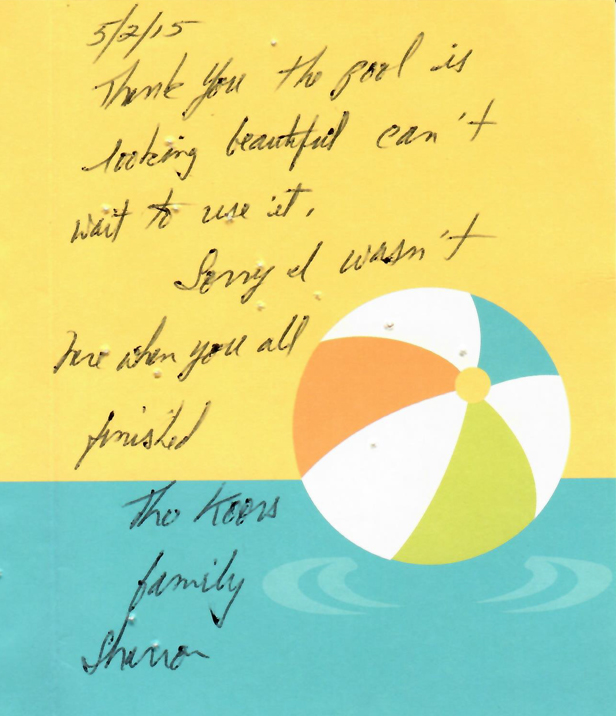 5/2/15
Thank You the pool is
looking beautiful can't
wait to use it.
Sorry I wasn't
here when you all
finished
The Koors
family
Sharron